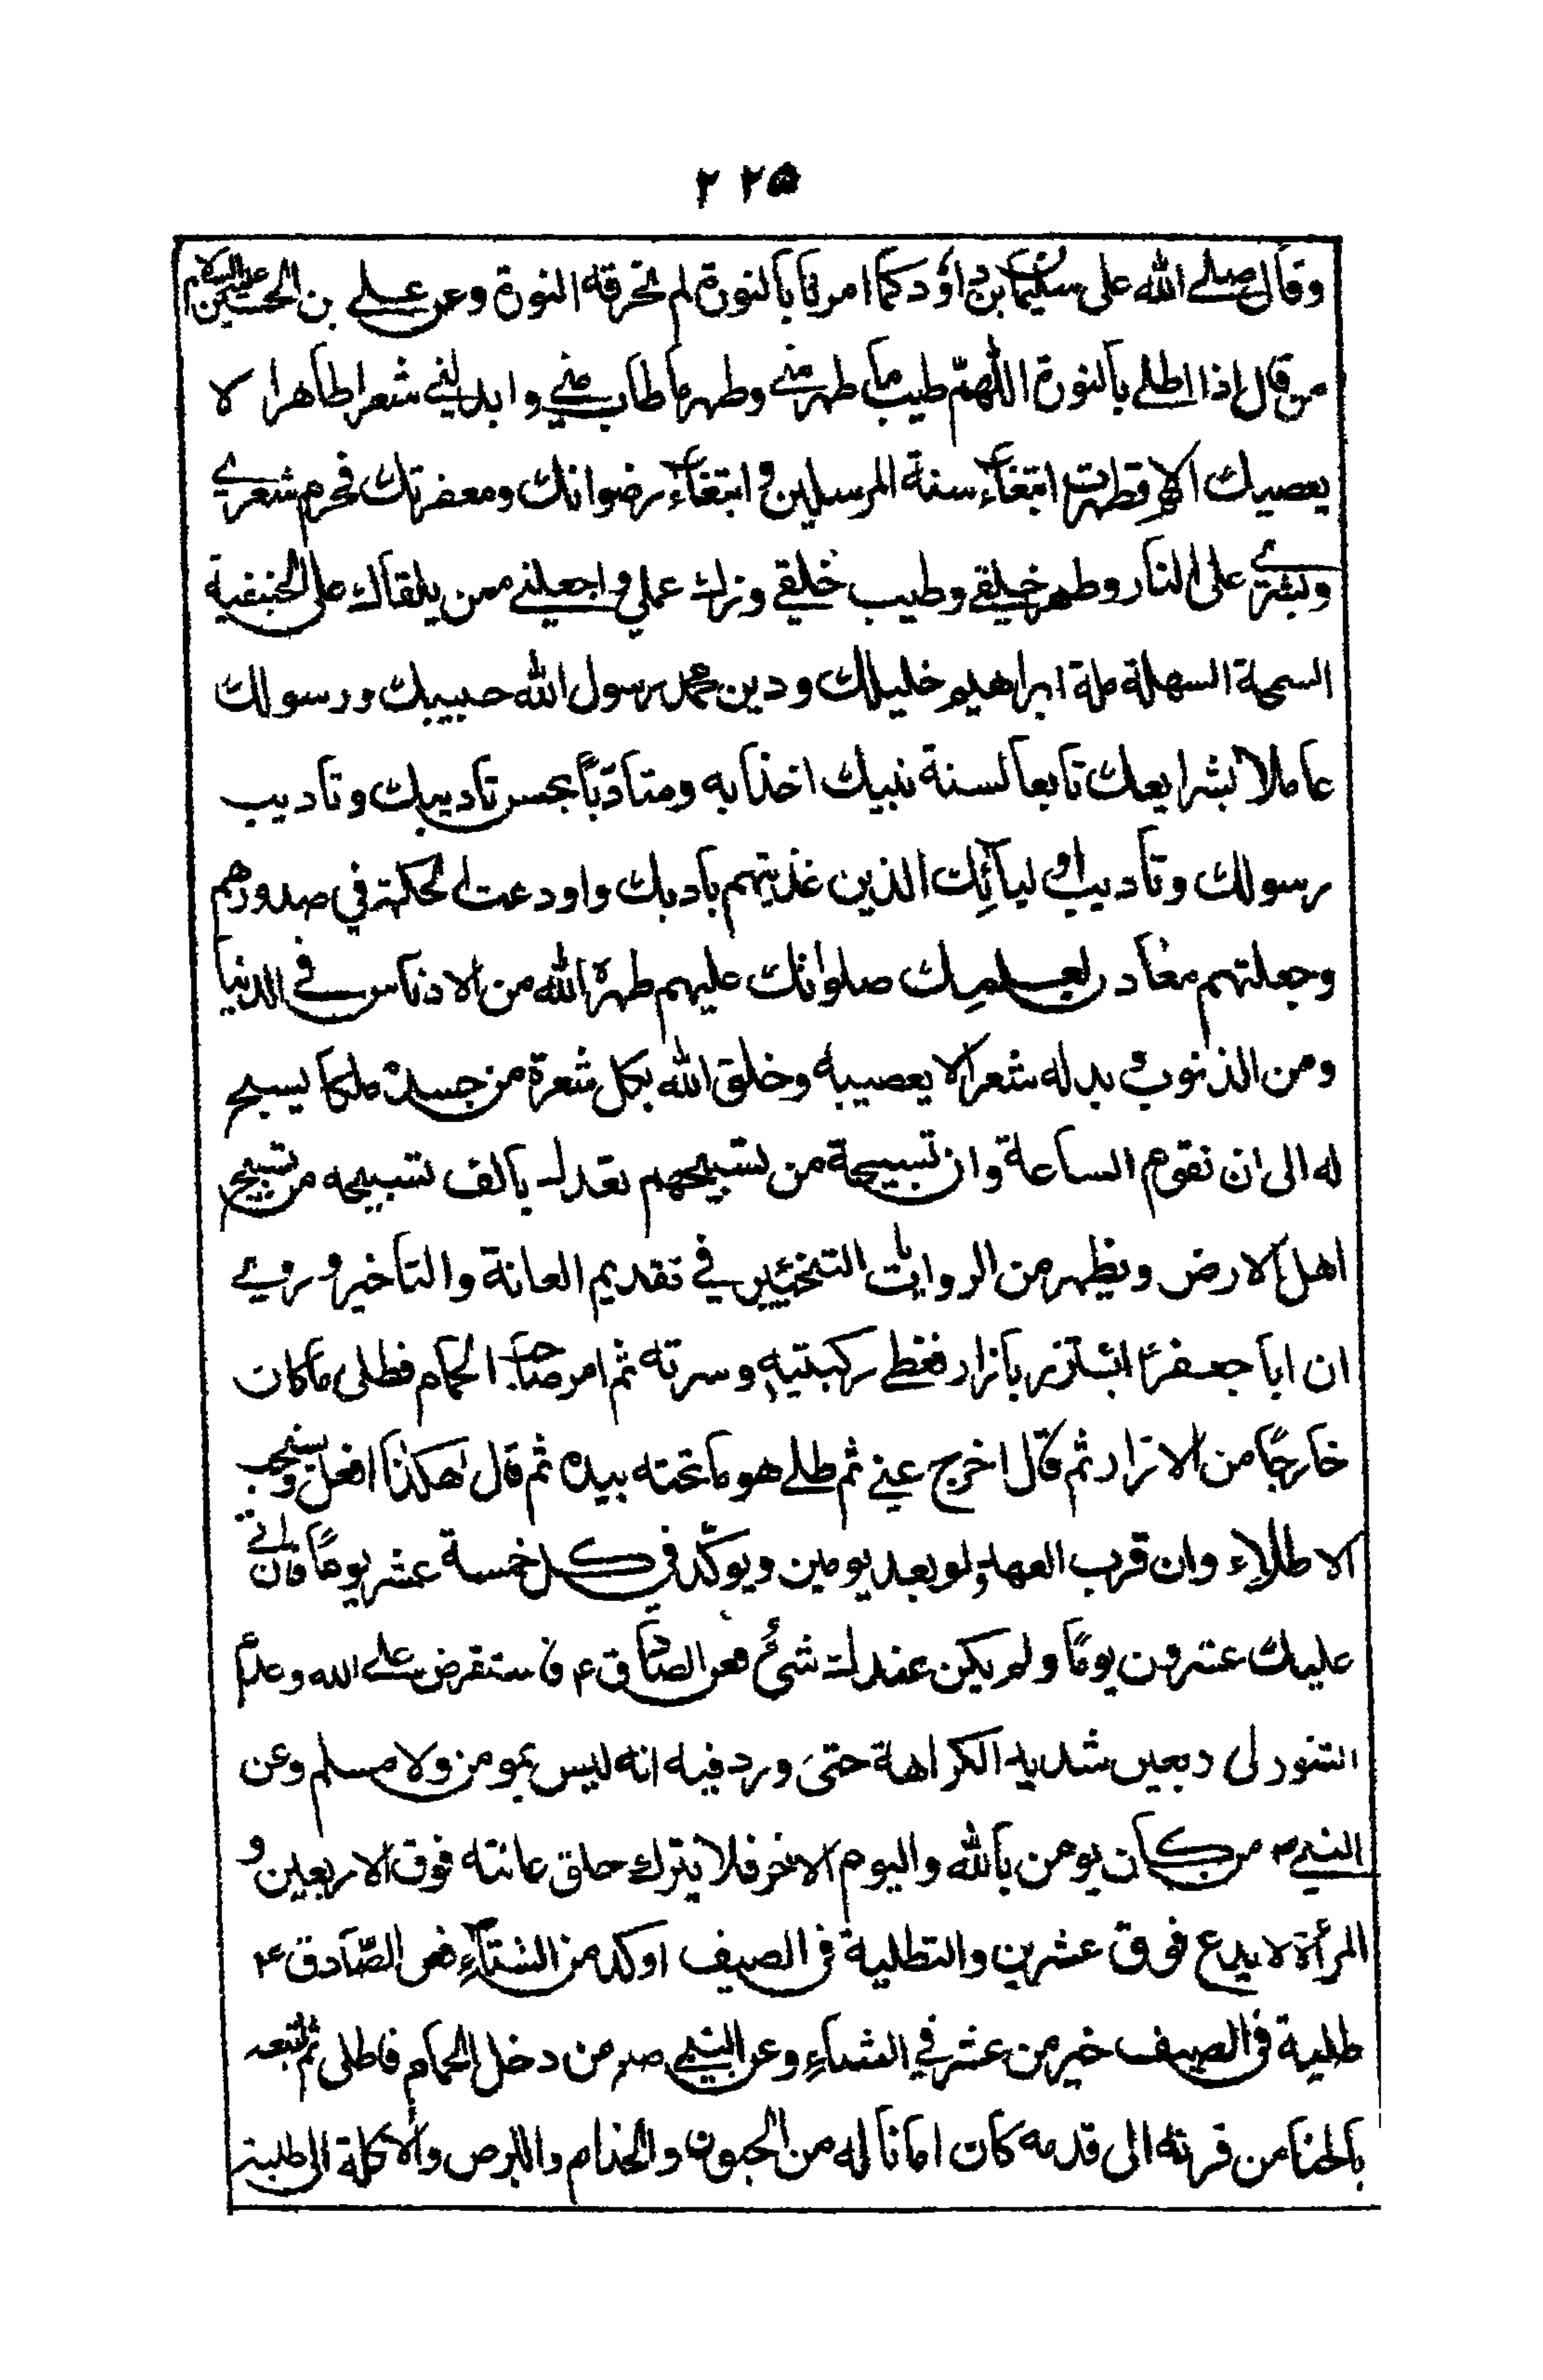 ٢٢٥ ٢
وقال صلى الله على سليمان بن داؤد كما امرنا بالنورة لم تحرقه النورة وعن على بن الحسين عليه السلام
من قال اذا اطلى بالنورة اللهمّ طيب ما طهر منى وطهر ما طاب منى وابدلنى شعرا طاهرا لا
يعصيك اللهم انى تطهرت ابتغاء سنة المرسلين و ابتغاء رضوانك ومغفرتك فحرم شعرى
وبشرى على النار وطهر خلقى وطيب خلقى وزك عملى واجعلنى ممن يلقاك على الحنيفية
السمحة السهلة ملة ابراهيم خليلك ودين محمد رسول الله حبيبك ورسولك
عاملا بشرايعك تابعا لسنة نبيك اخذا به ومتادّباً بحسن تاديبك وتاديب
رسولك وتاديب اوليائك الذين غذيتهم بادبك واودعت الحكمة في صدورهم
وجعلتهم معادن لعلمك صلواتك عليهم طهره الله من الادناس فى الدنيا
ومن الذنوب و بدله شعرا لا يعصيه وخلق الله بكل شعرة من جسده ملكا يسبح
له الى ان تقوم الساعة وان تسبيحة من تسبيحهم تعدل بالف تسبيحه من تسبيح
اهل الارض ويظهر من الروايات التخيير في تقديم العانة والتاخير وروى
ان ابا جعفرؑ ائتزر بازار فغطى ركبتيه وسرته ثم امر صاحب الحمام فطلى ما كان
خارجًا من الازار ثم قال اخرج عنى ثم طلى هو ما تحته بيده ثم قال هكذا افعل ويستحب
الاطلاء وان قرب العهد ولو بعد يومين ويوكّد فى كل خمسة عشر يومًا فان اتى
عليك عشرون يومًا ولم يكن عندك شئ فعن الصادق ع فاستقرض على الله وعدم
التنور لى ربعين شديد الكراهة حتى ورد فيه انه ليس بمومن ولا مسلم وعن
النبى ص من كان يومن بالله واليوم الاخر فلا يترك حلق عانته فوق الاربعين و
المرأة لا يدع فوق عشرين والتطلية فى الصيف اوكد من الشتاء فعن الصّادق ع
طلية فى الصيف خير من عشر في الشتاء وعن النبى ص من دخل الحمام فاطلى ثم اتبعه
بالحنا من قرنه الى قدمه كان امانا له من الجنون والجذام والبرص والاكلة الى طلية